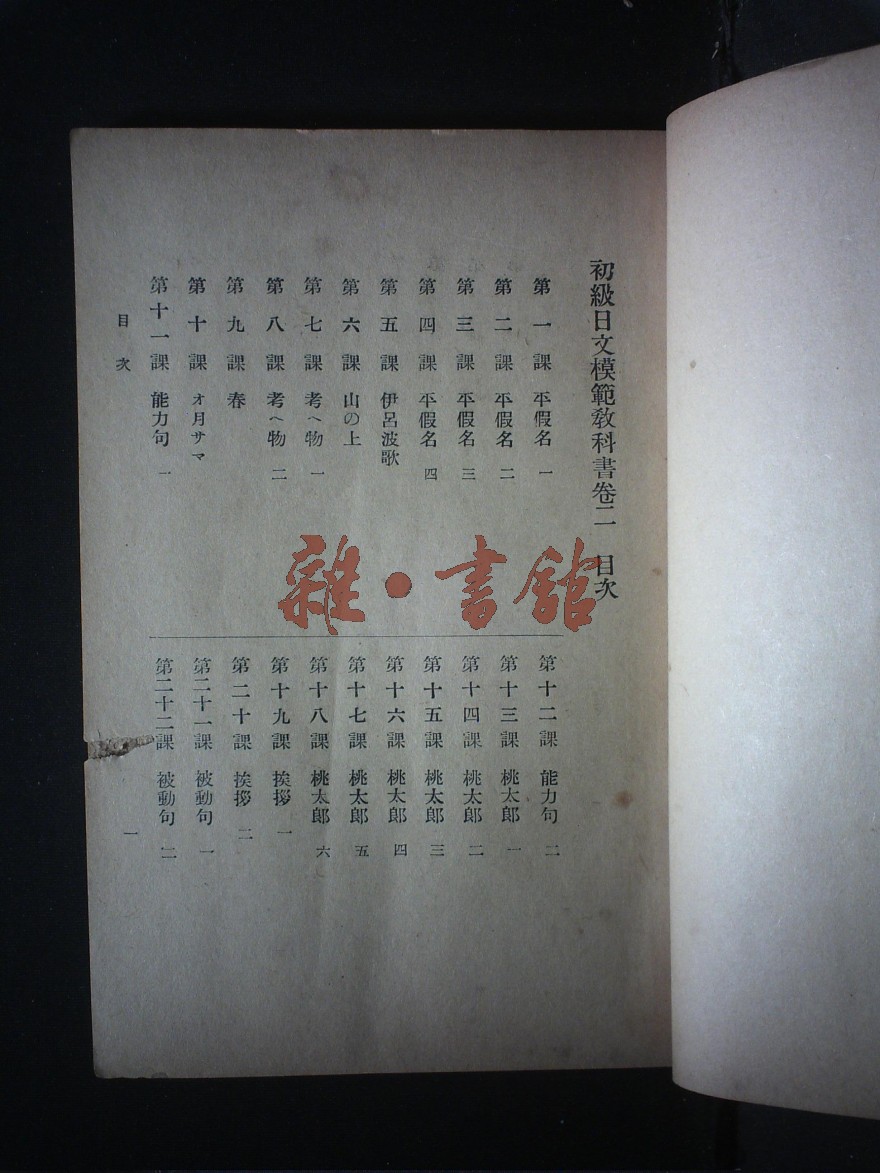 初級日文模範敎科書卷二　目次
第一課　平假名　一
第二課　平假名　二
第三課　平假名　三
第四課　平假名　四
第五課　伊呂波歌
第六課　山の上
第七課　考ヘ物　一
第八課　考ヘ物　二
第九課　春
第十課　オ月サマ
第十一課　能力句　一
第十二課　能力句　二
第十三課　桃太郞　一
第十四課　桃太郞　二
第十五課　桃太郞　三
第十六課　桃太郞　四
第十七課　桃太郞　五
第十八課　桃太郞　六
第十九課　挨拶　一
第二十課　挨拶　二
第二十一課　被動句　一
第二十二課　被動句　二
目次
一
雜・書館